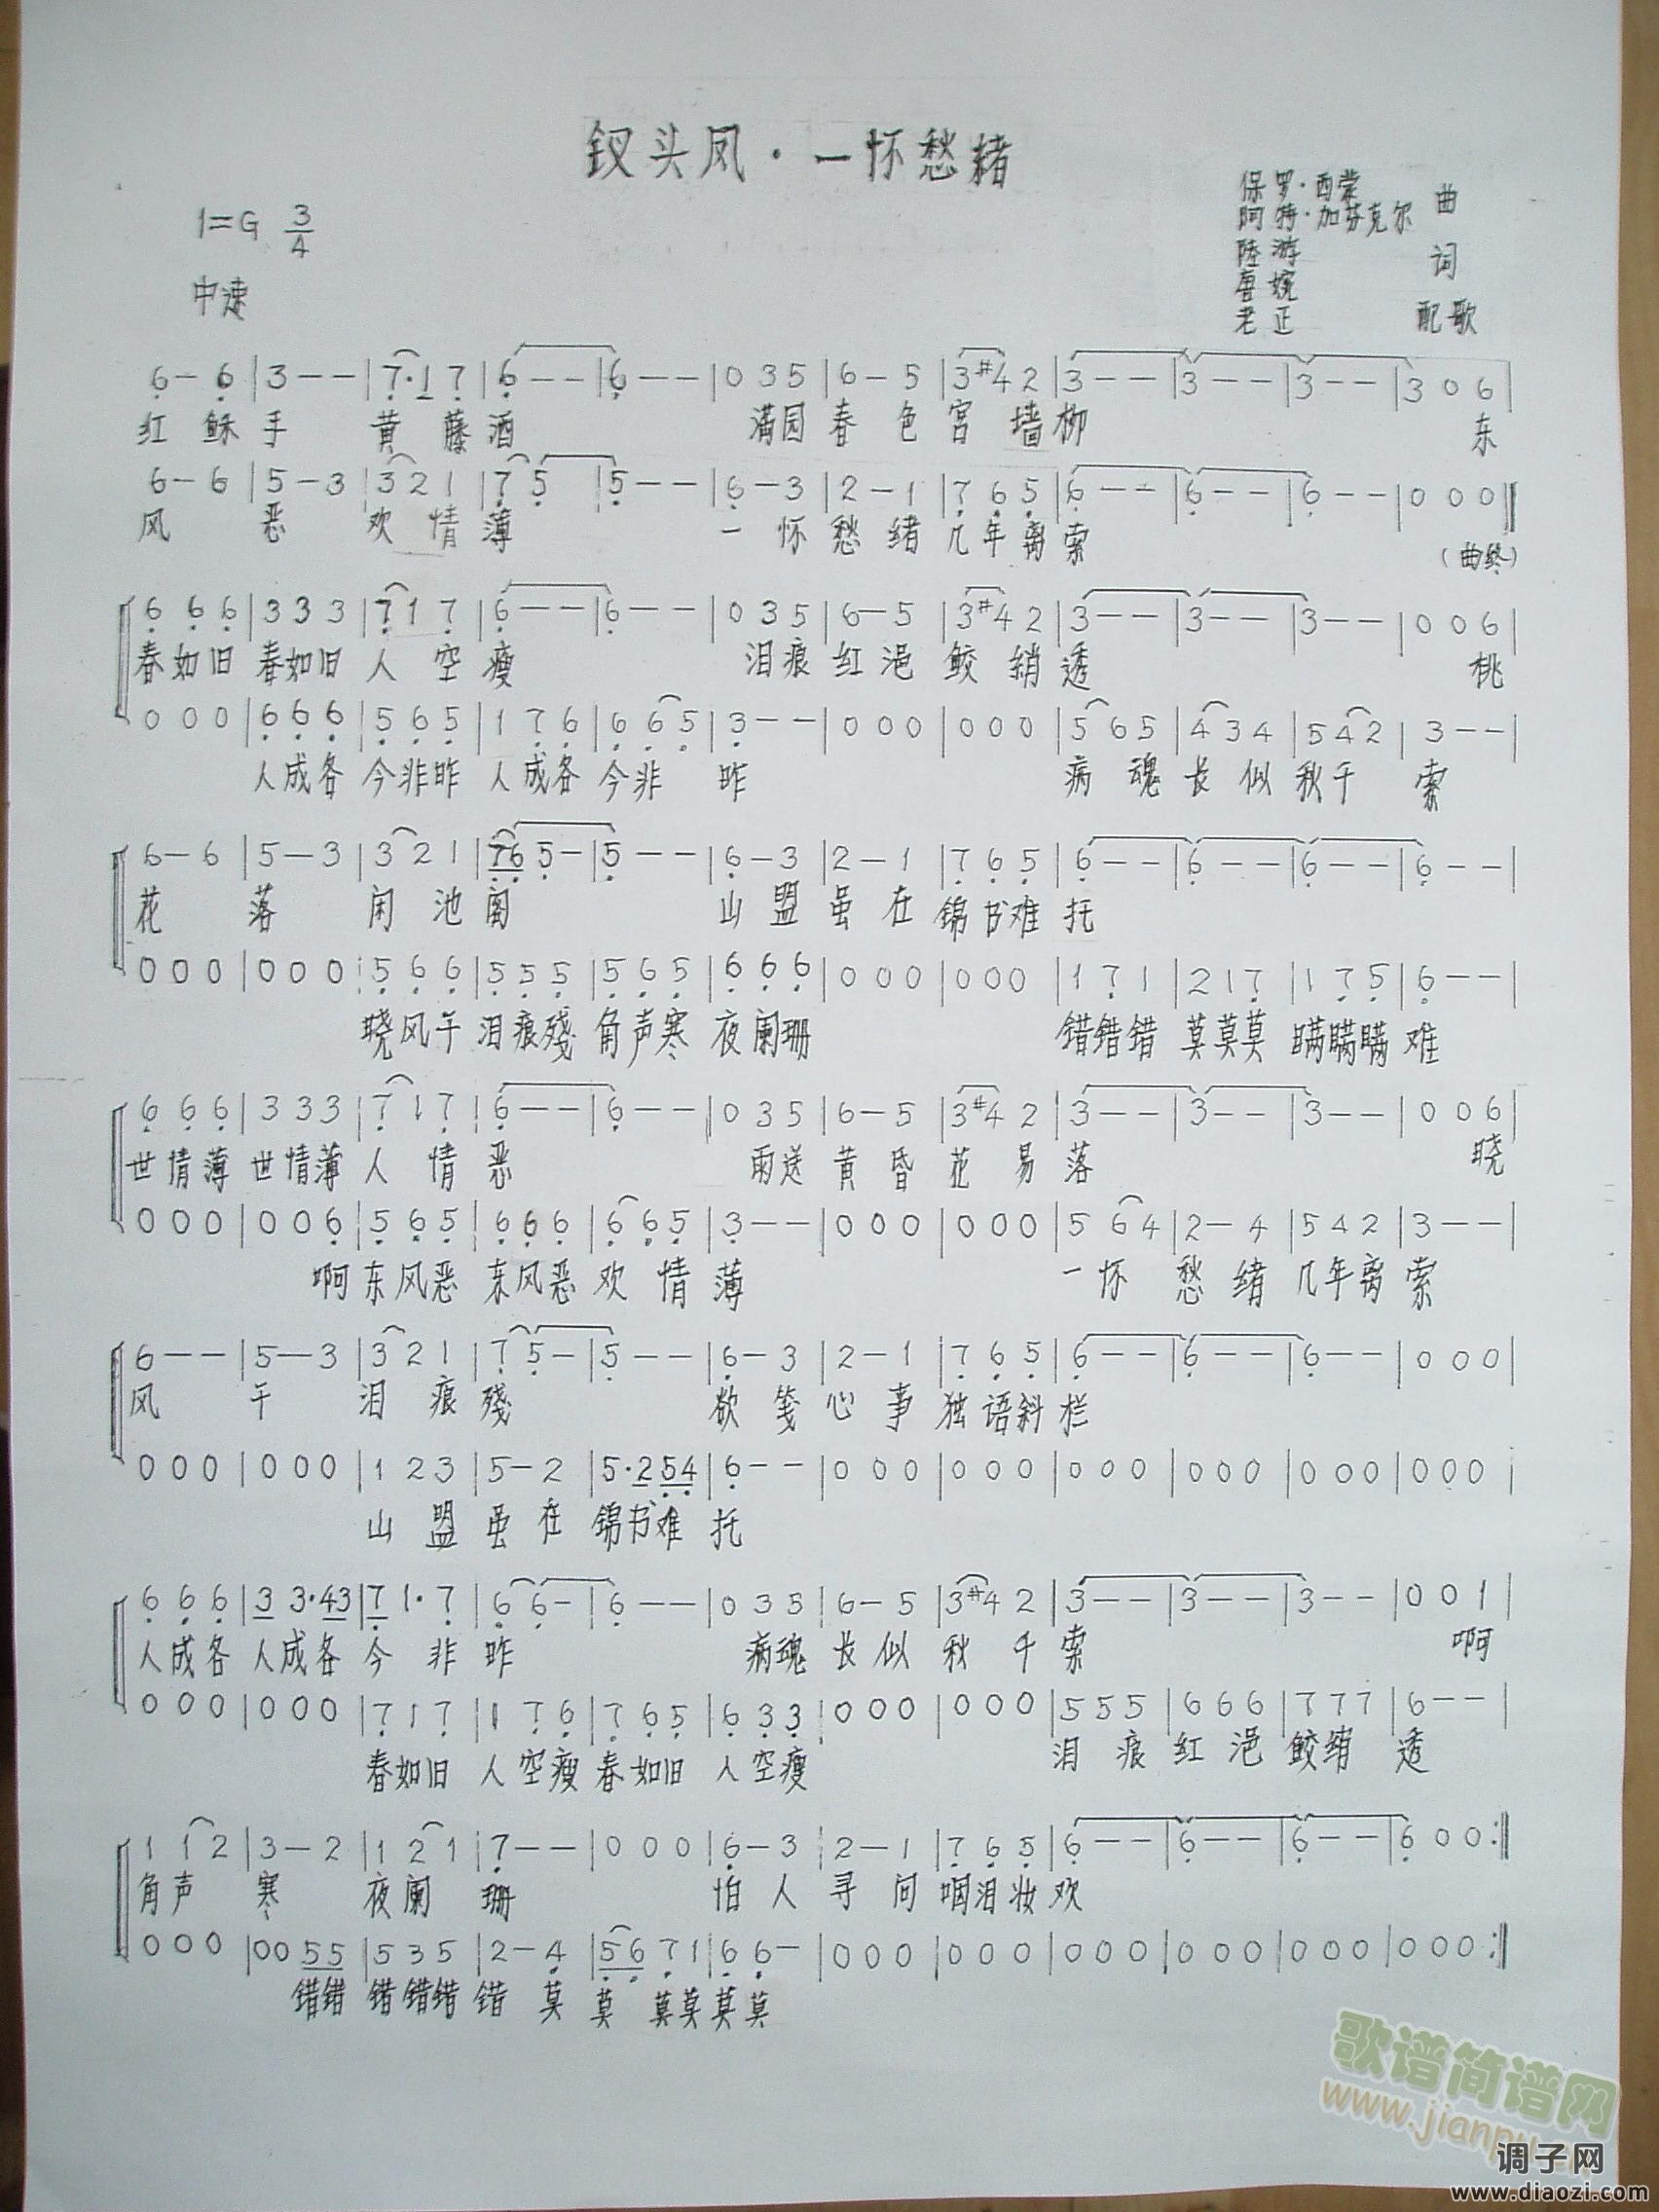 钗头凤·一怀愁绪
1=G 3/4
中速
保罗·西蒙
阿特·加芬克尔 曲
陆游
唐婉 词
老正 配歌
6-6|3--|7·17|6--|6--|035|6-5|3#42|3--|3--|3--|306|
红酥手 黄藤酒 满园春色宫墙柳 东
6-6|5-3|321|75|5--|6-3|2-1|765|6--|6--|6--|000‖
风恶欢情薄 一怀愁绪几年离索
(曲终)
666|333|717|6--|6--|035|6-5|3#42|3--|3--|3--|006|
春如旧春如旧人空瘦 泪痕红浥鲛绡透 桃
000|666|565|176|665|3--|000|000|565|434|542|3--|
人成各今非昨人成各今非昨 病魂长似秋千索
6-6|5-3|321|765-|5--|6-3|2-1|765|6--|6--|6--|6--|
花落闲池阁 山盟虽在锦书难托
000|000|566|555|565|666|000|000|171|217|175|6--|
晓风干泪痕残角声寒夜阑珊 错错错莫莫莫瞒瞒瞒难
666|333|717|6--|6--|035|6-5|3#42|3--|3--|3--|006|
世情薄世情薄人情恶 雨送黄昏花易落 晓
000|006|565|666|665|3--|000|000|564|2-4|542|3--|
啊东风恶东风恶欢情薄 一怀愁绪几年离索
6--|5-3|321|75-|5--|6-3|2-1|765|6--|6--|6--|000|
风干泪痕残 欲笺心事独语斜栏
000|000|123|5-2|5·254|6--|000|000|000|000|000|000|
山盟虽在锦书难托
666|33·43|71·7|66-|6--|035|6-5|3#42|3--|3--|3--|001|
人成各人成各今非昨 病魂长似秋千索 啊
000|000|717|176|765|633|000|000|555|666|777|6--|
春如旧人空瘦春如旧人空瘦 泪痕红浥鲛绡透
112|3-2|121|7--|000|6-3|2-1|765|6--|6--|6--|600:‖
角声寒夜阑珊 怕人寻问咽泪妆欢
000|0055|535|2-4|5671|66-|000|000|000|000|000|000:‖
错错错错错错莫莫莫莫莫莫
歌谱简谱网
www.jianpu
调子网
www.diaozi.com